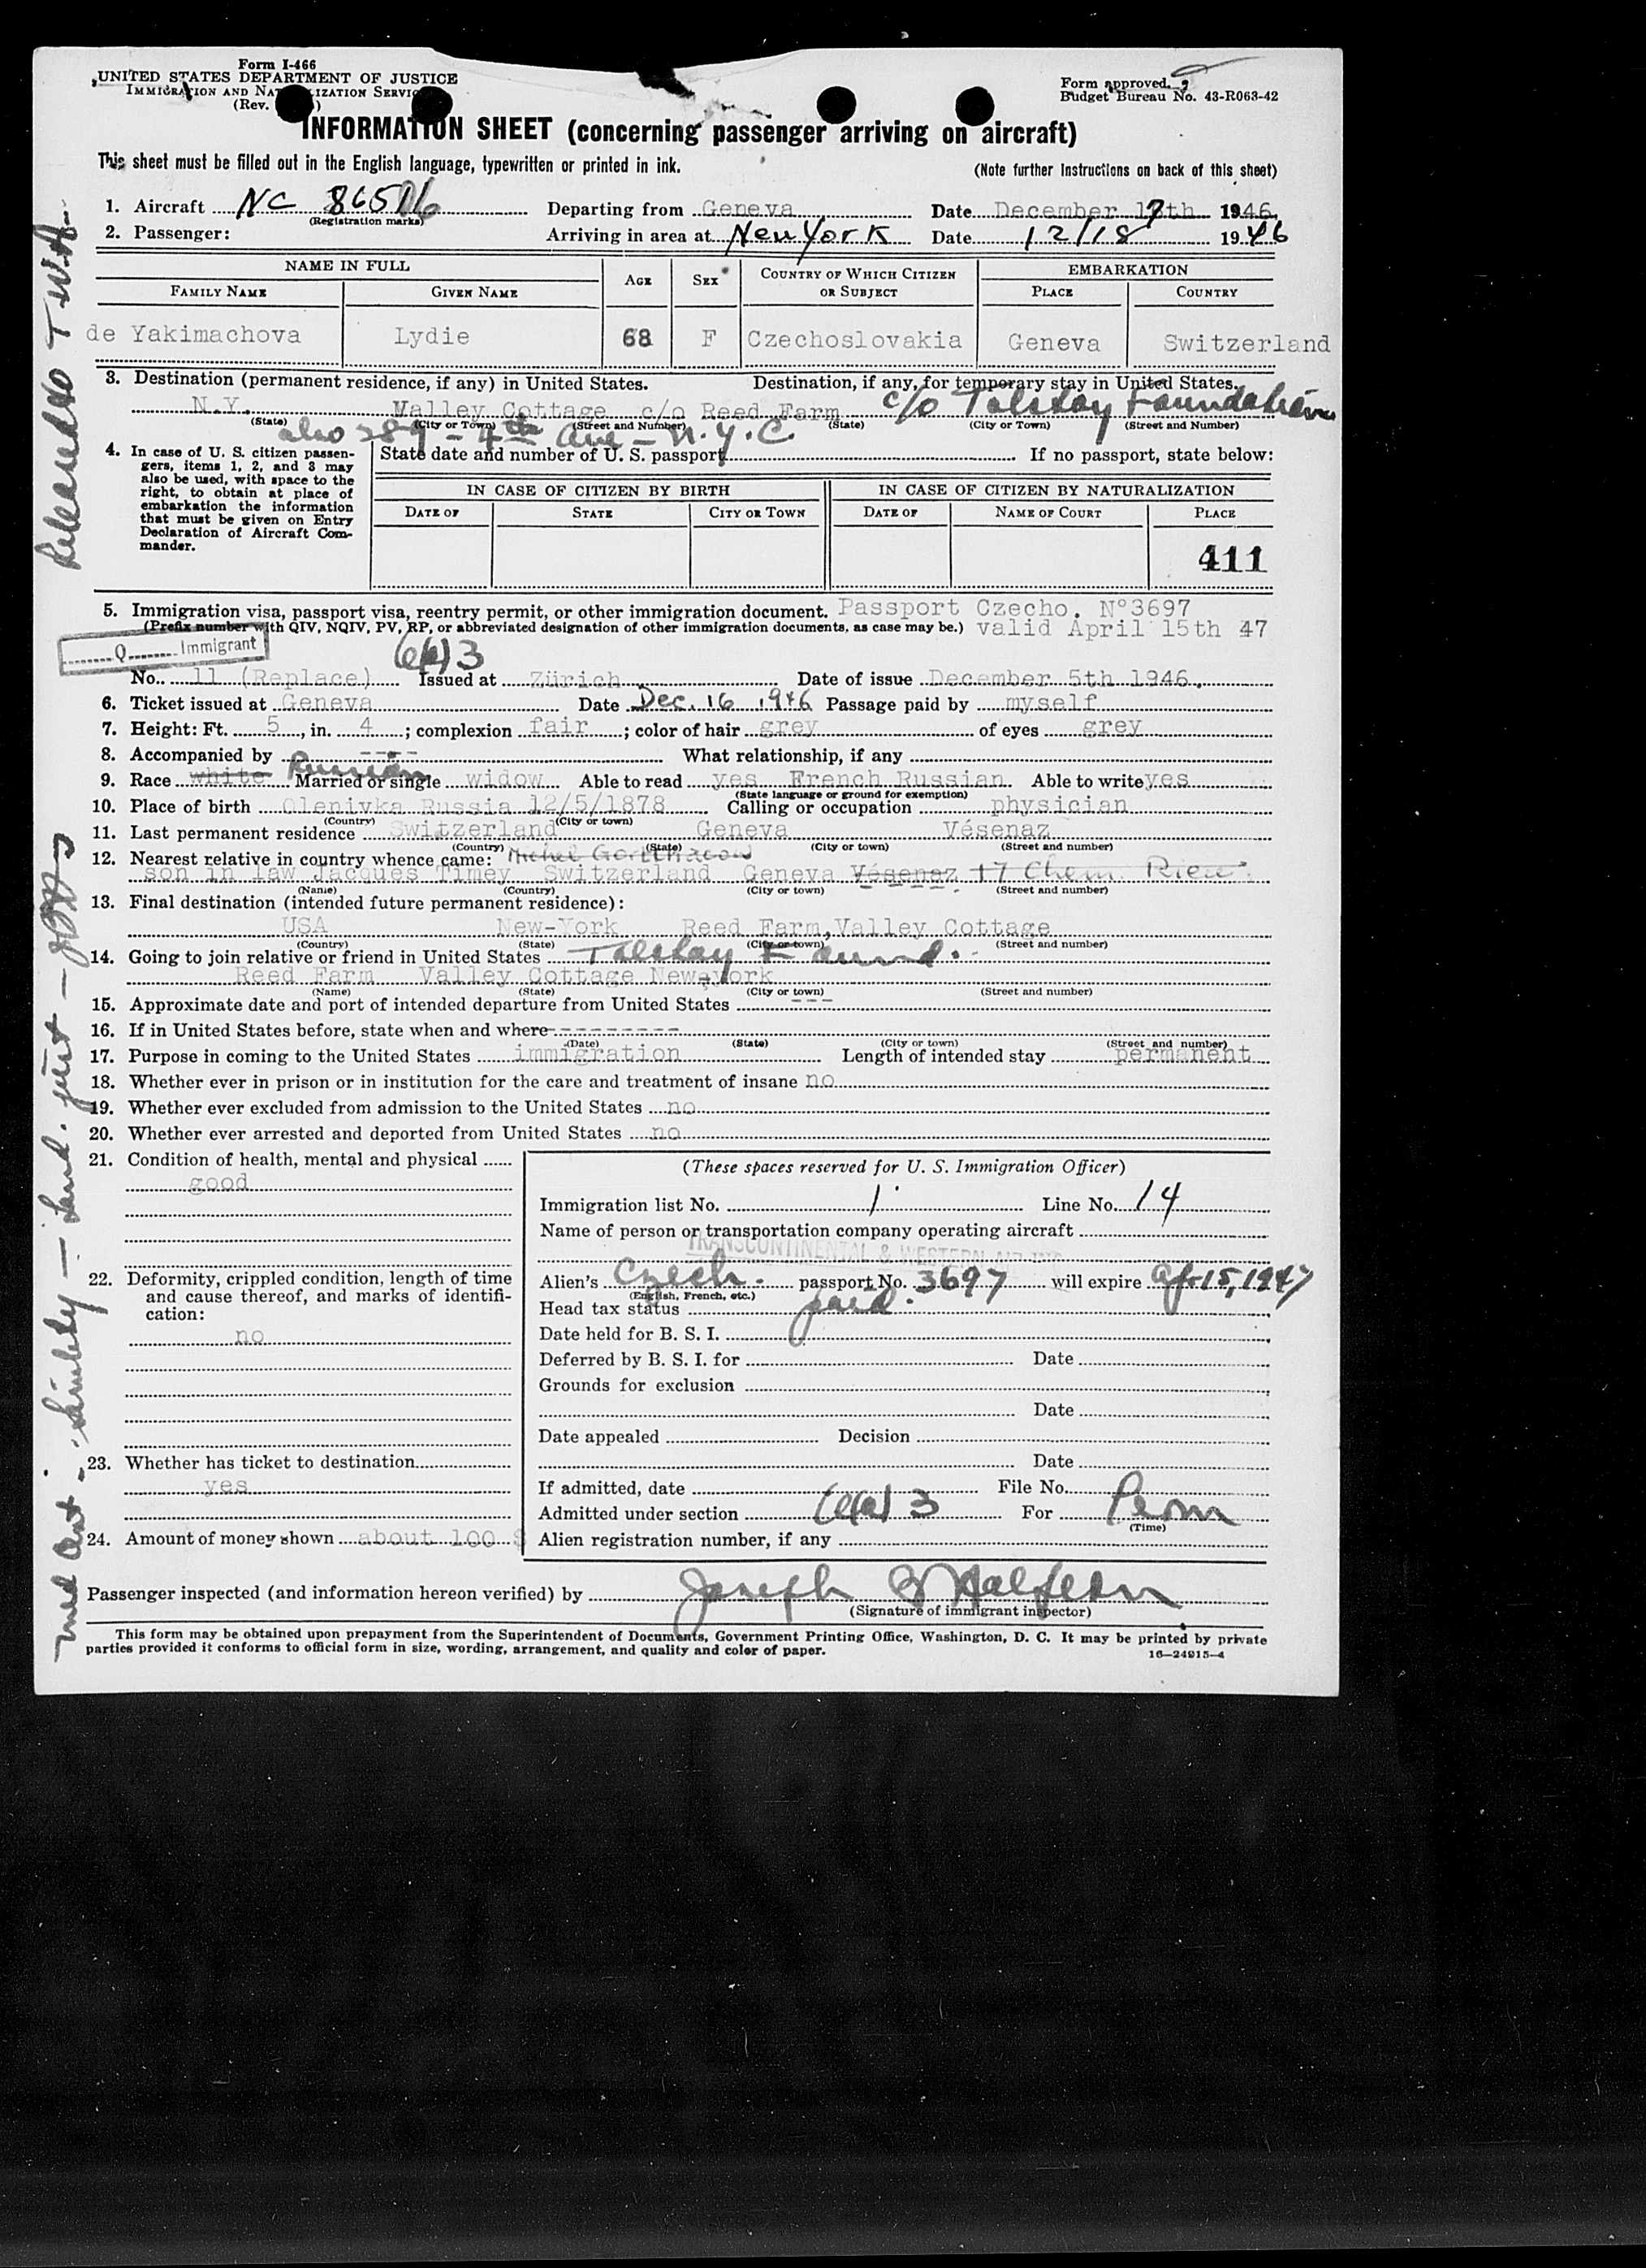 Form I-466
UNITED STATES DEPARTMENT OF JUSTICE
IMMIGRATION AND NATURALIZATION SERVICE
(Rev. )
Form approved.
Budget Bureau No. 43-R063-42
INFORMATION SHEET (concerning passenger arriving on aircraft)
This sheet must be filled out in the English language, typewritten or printed in ink. (Note further instructions on back of this sheet)
1. Aircraft NC 86516 Departing from Geneva Date December 17th 1946
(Registration marks)
2. Passenger: Arriving in area at New York Date 12/18 1946
NAME IN FULL AGE SEX COUNTRY OF WHICH CITIZEN OR SUBJECT EMBARKATION
FAMILY NAME GIVEN NAME PLACE COUNTRY
de Yakimachova Lydie 68 F Czechoslovakia Geneva Switzerland
3. Destination (permanent residence, if any) in United States. Destination, if any, for temporary stay in United States.
N.Y. Valley Cottage c/o Reed Farm c/o Tolstoy Foundation
(State) (City or Town) (Street and Number) (State) (City or Town) (Street and Number)
also 289 - 4th Ave - N.Y.C.
4. In case of U. S. citizen passengers, items 1, 2, and 3 may also be used, with space to the right, to obtain at place of embarkation the information that must be given on Entry Declaration of Aircraft Commander.
State date and number of U. S. passport If no passport, state below:
IN CASE OF CITIZEN BY BIRTH IN CASE OF CITIZEN BY NATURALIZATION
DATE OF STATE CITY OR TOWN DATE OF NAME OF COURT PLACE
411
5. Immigration visa, passport visa, reentry permit, or other immigration document. Passport Czecho. N°3697
(Prefix number with QIV, NQIV, PV, RP, or abbreviated designation of other immigration documents, as case may be.) valid April 15th 47
Q Immigrant
6(a)3
No. 11 (Replace) Issued at Zürich Date of issue December 5th 1946.
6. Ticket issued at Geneva Date Dec. 16 1946 Passage paid by myself
7. Height: Ft. 5, in. 4; complexion fair; color of hair grey of eyes grey
8. Accompanied by ---- What relationship, if any
9. Race white Russian Married or single widow Able to read yes French Russian Able to write yes
(State language or ground for exemption)
10. Place of birth Olenivka Russia 12/5/1878 Calling or occupation physician
(Country) (City or town)
11. Last permanent residence Switzerland Geneva Vésenaz
(Country) (State) (City or town) (Street and number)
12. Nearest relative in country whence came: Michel
son in law Jacques Timey Switzerland Geneva Vésenaz 17 Chem. Rieu
(Name) (Country) (City or town) (Street and number)
13. Final destination (intended future permanent residence):
USA New-York Reed Farm, Valley Cottage
(Country) (State) (City or town) (Street and number)
14. Going to join relative or friend in United States Tolstoy Found.
Reed Farm Valley Cottage New-York
(Name) (State) (City or town) (Street and number)
15. Approximate date and port of intended departure from United States ---
16. If in United States before, state when and where ---------
(Date) (State) (City or town) (Street and number)
17. Purpose in coming to the United States immigration Length of intended stay permanent
18. Whether ever in prison or in institution for the care and treatment of insane no
19. Whether ever excluded from admission to the United States no
20. Whether ever arrested and deported from United States no
21. Condition of health, mental and physical
good
22. Deformity, crippled condition, length of time and cause thereof, and marks of identification:
no
23. Whether has ticket to destination
yes
24. Amount of money shown about 100 $
(These spaces reserved for U. S. Immigration Officer)
Immigration list No. 1 Line No. 14
Name of person or transportation company operating aircraft
TRANSCONTINENTAL & WESTERN AIR INC
Alien's Czech. passport No. 3697 will expire Ap 15, 1947
(English, French, etc.)
Head tax status paid.
Date held for B. S. I.
Deferred by B. S. I. for Date
Grounds for exclusion
Date
Date appealed Decision
Date
If admitted, date File No.
Admitted under section 6(a)3 For Perm
(Time)
Alien registration number, if any
Passenger inspected (and information hereon verified) by Joseph Halpern
(Signature of immigrant inspector)
This form may be obtained upon prepayment from the Superintendent of Documents, Government Printing Office, Washington, D. C. It may be printed by private
parties provided it conforms to official form in size, wording, arrangement, and quality and color of paper.
16—24915-4
Released to T.W.A.
Med Cert. Senility